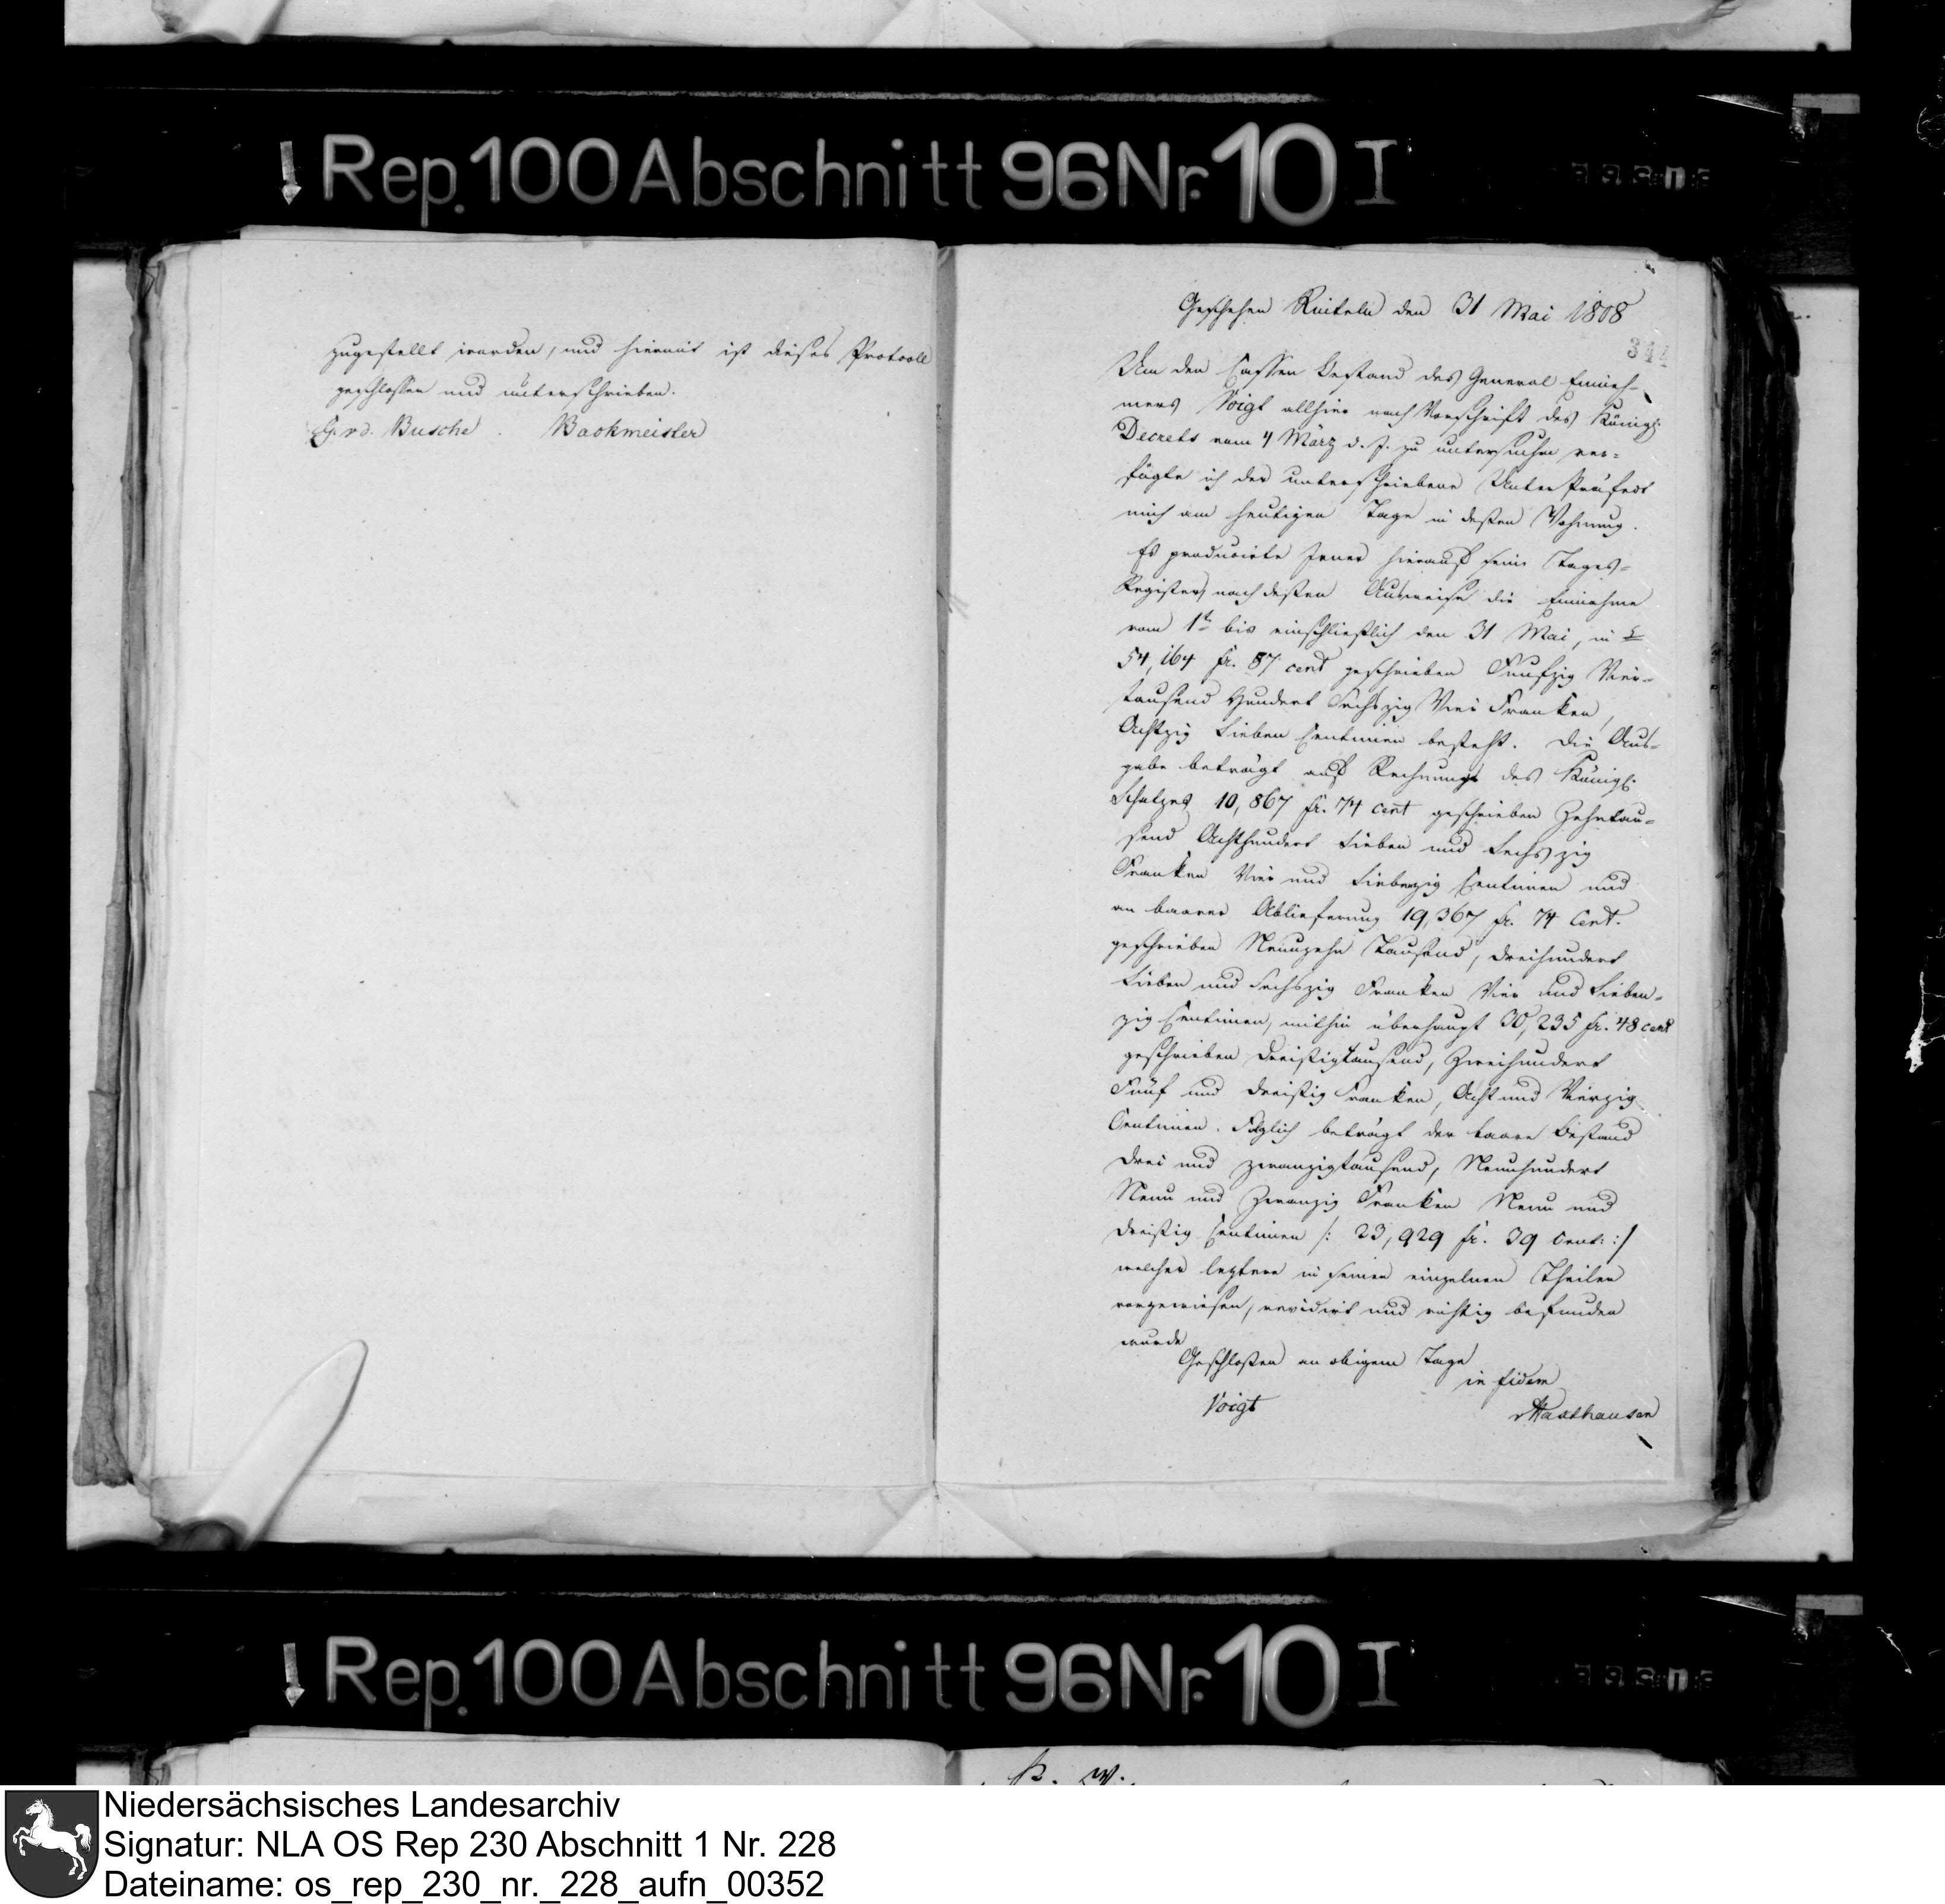 Rep. 100 Abschnitt 96 Nr. 10 I
zugestellt worden, und hiermit ist dieses Protocoll
geschlossen und unterschrieben.
G. v d. Busche. Backmeister
Geschehen Rinteln den 31 Mai 1808
Um den Cassen Bestand des General Einneh-
mers Voigt allhier nach Vorschrift des Königl.
Decrets vom 4 März d. J. zu untersuchen ver-
fügte ich der unterschriebene Unter Präfect
mich am heutigen Tage in deßen Wohnung.
Es producirte Jener hierauf sein Tages-
Register, nach deßen Ausweise die Einnahme
vom 1t bis einschließlich den 31 Mai, in
54,164 fr. 87 cent geschrieben Funfzig Vier-
tausend Hundert Sechszig Vier Franken,
Achtzig Sieben Centimen besteht. Die Aus-
gabe beträgt auf Rechnung des Königl.
Schatzes 10,867 fr. 74 cent geschrieben Zehntau-
send Achthundert Sieben und Sechszig
Franken Vier und Siebenzig Centimen und
an baarer Ablieferung 19,367 fr. 74 Cent.
geschrieben Neunzehn Tausend, dreihundert
Sieben und Sechszig Franken Vier und Sieben-
zig Centimen, mithin überhaupt 30,235 fr. 48 cent
geschrieben Dreißigtausend, Zweihundert
Fünf und dreißig Franken, Acht und Vierzig
Centimen. Folglich beträgt der baare Bestand
Drei und zwanzigtausend, Neunhundert
Neun und Zwanzig Franken Neun und
dreißig Centimen /: 23,929 fr. 39 Cent: :/
welcher leztere in seinen einzelnen Theilen
vorgewiesen, revidirt und richtig befunden
wurde
Geschloßen an obigem Tage
in fidem
Voigt
Rep. 100 Abschnitt 96 Nr. 10 I
Niedersächsisches Landesarchiv
Signatur: NLA OS Rep 230 Abschnitt 1 Nr. 228
Dateiname: os_rep_230_nr._228_aufn_00352